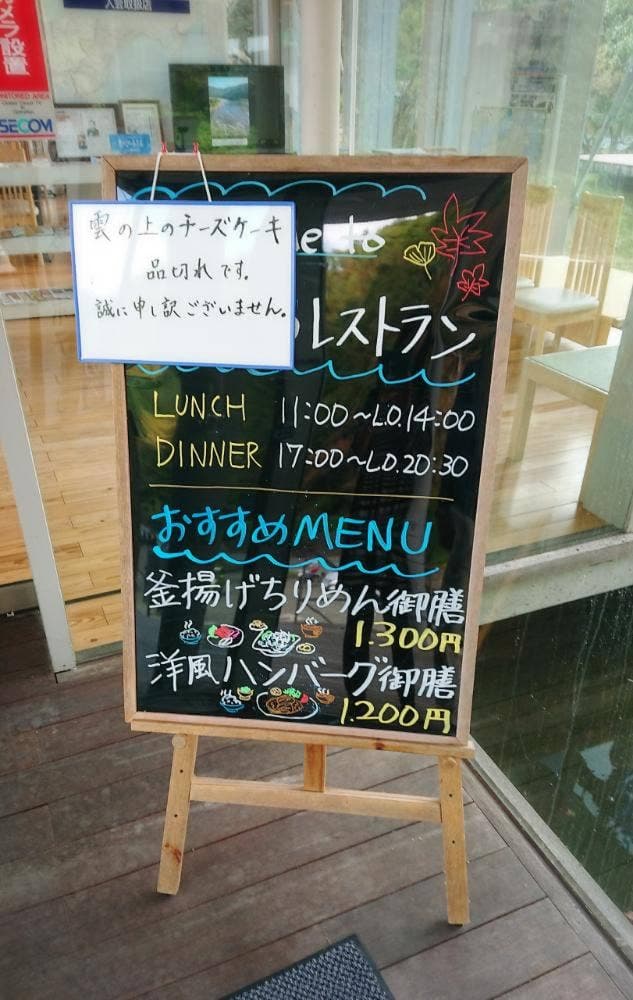 メラ設置
SECOM
雲の上のチーズケーキ
品切れです。
誠に申し訳ございません。
to
レストラン
LUNCH 11:00~L.O.14:00
DINNER 17:00~L.O.20:30
おすすめMENU
釜揚げちりめん御膳
1.300円
洋風ハンバーグ御膳
1.200円